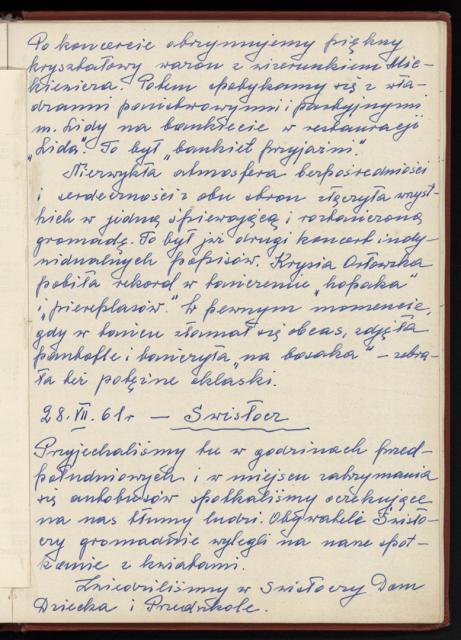 Po koncercie otrzymujemy piękny
kryształowy wazon z wizerunkiem Mic-
kiewicza. Potem spotykamy się z wła-
dzami państwowymi i partyjnymi
m. Lidy na bankiecie w restauracji
„Lida". To był „bankiet przyjaźni."
Niezwykła atmosfera bezpośredniości
i serdeczności z obu stron złączyła wszyst-
kich w jedną śpiewającą i roztańczoną
gromadę. To był już drugi koncert indy-
widualnych popisów. Krysia Orłowska
pobiła rekord w tańczeniu „hopaka"
i „pierepłasów." W pewnym momencie,
gdy w tańcu złamał się obcas, zdjęła
pantofle i tańczyła „na bosaka" – zebra-
ła też potężne oklaski.
28.VII.61r – Świsłocz
Przyjechaliśmy tu w godzinach przed-
południowych i w miejscu zatrzymania
się autobusów spotkaliśmy oczekujące
na nas tłumy ludzi. Obywatele Świsło-
czy gromadnie wylegli na nasze spot-
kanie z kwiatami.
Zwiedziliśmy w Świsłoczy Dom
Dziecka i Przedszkole.